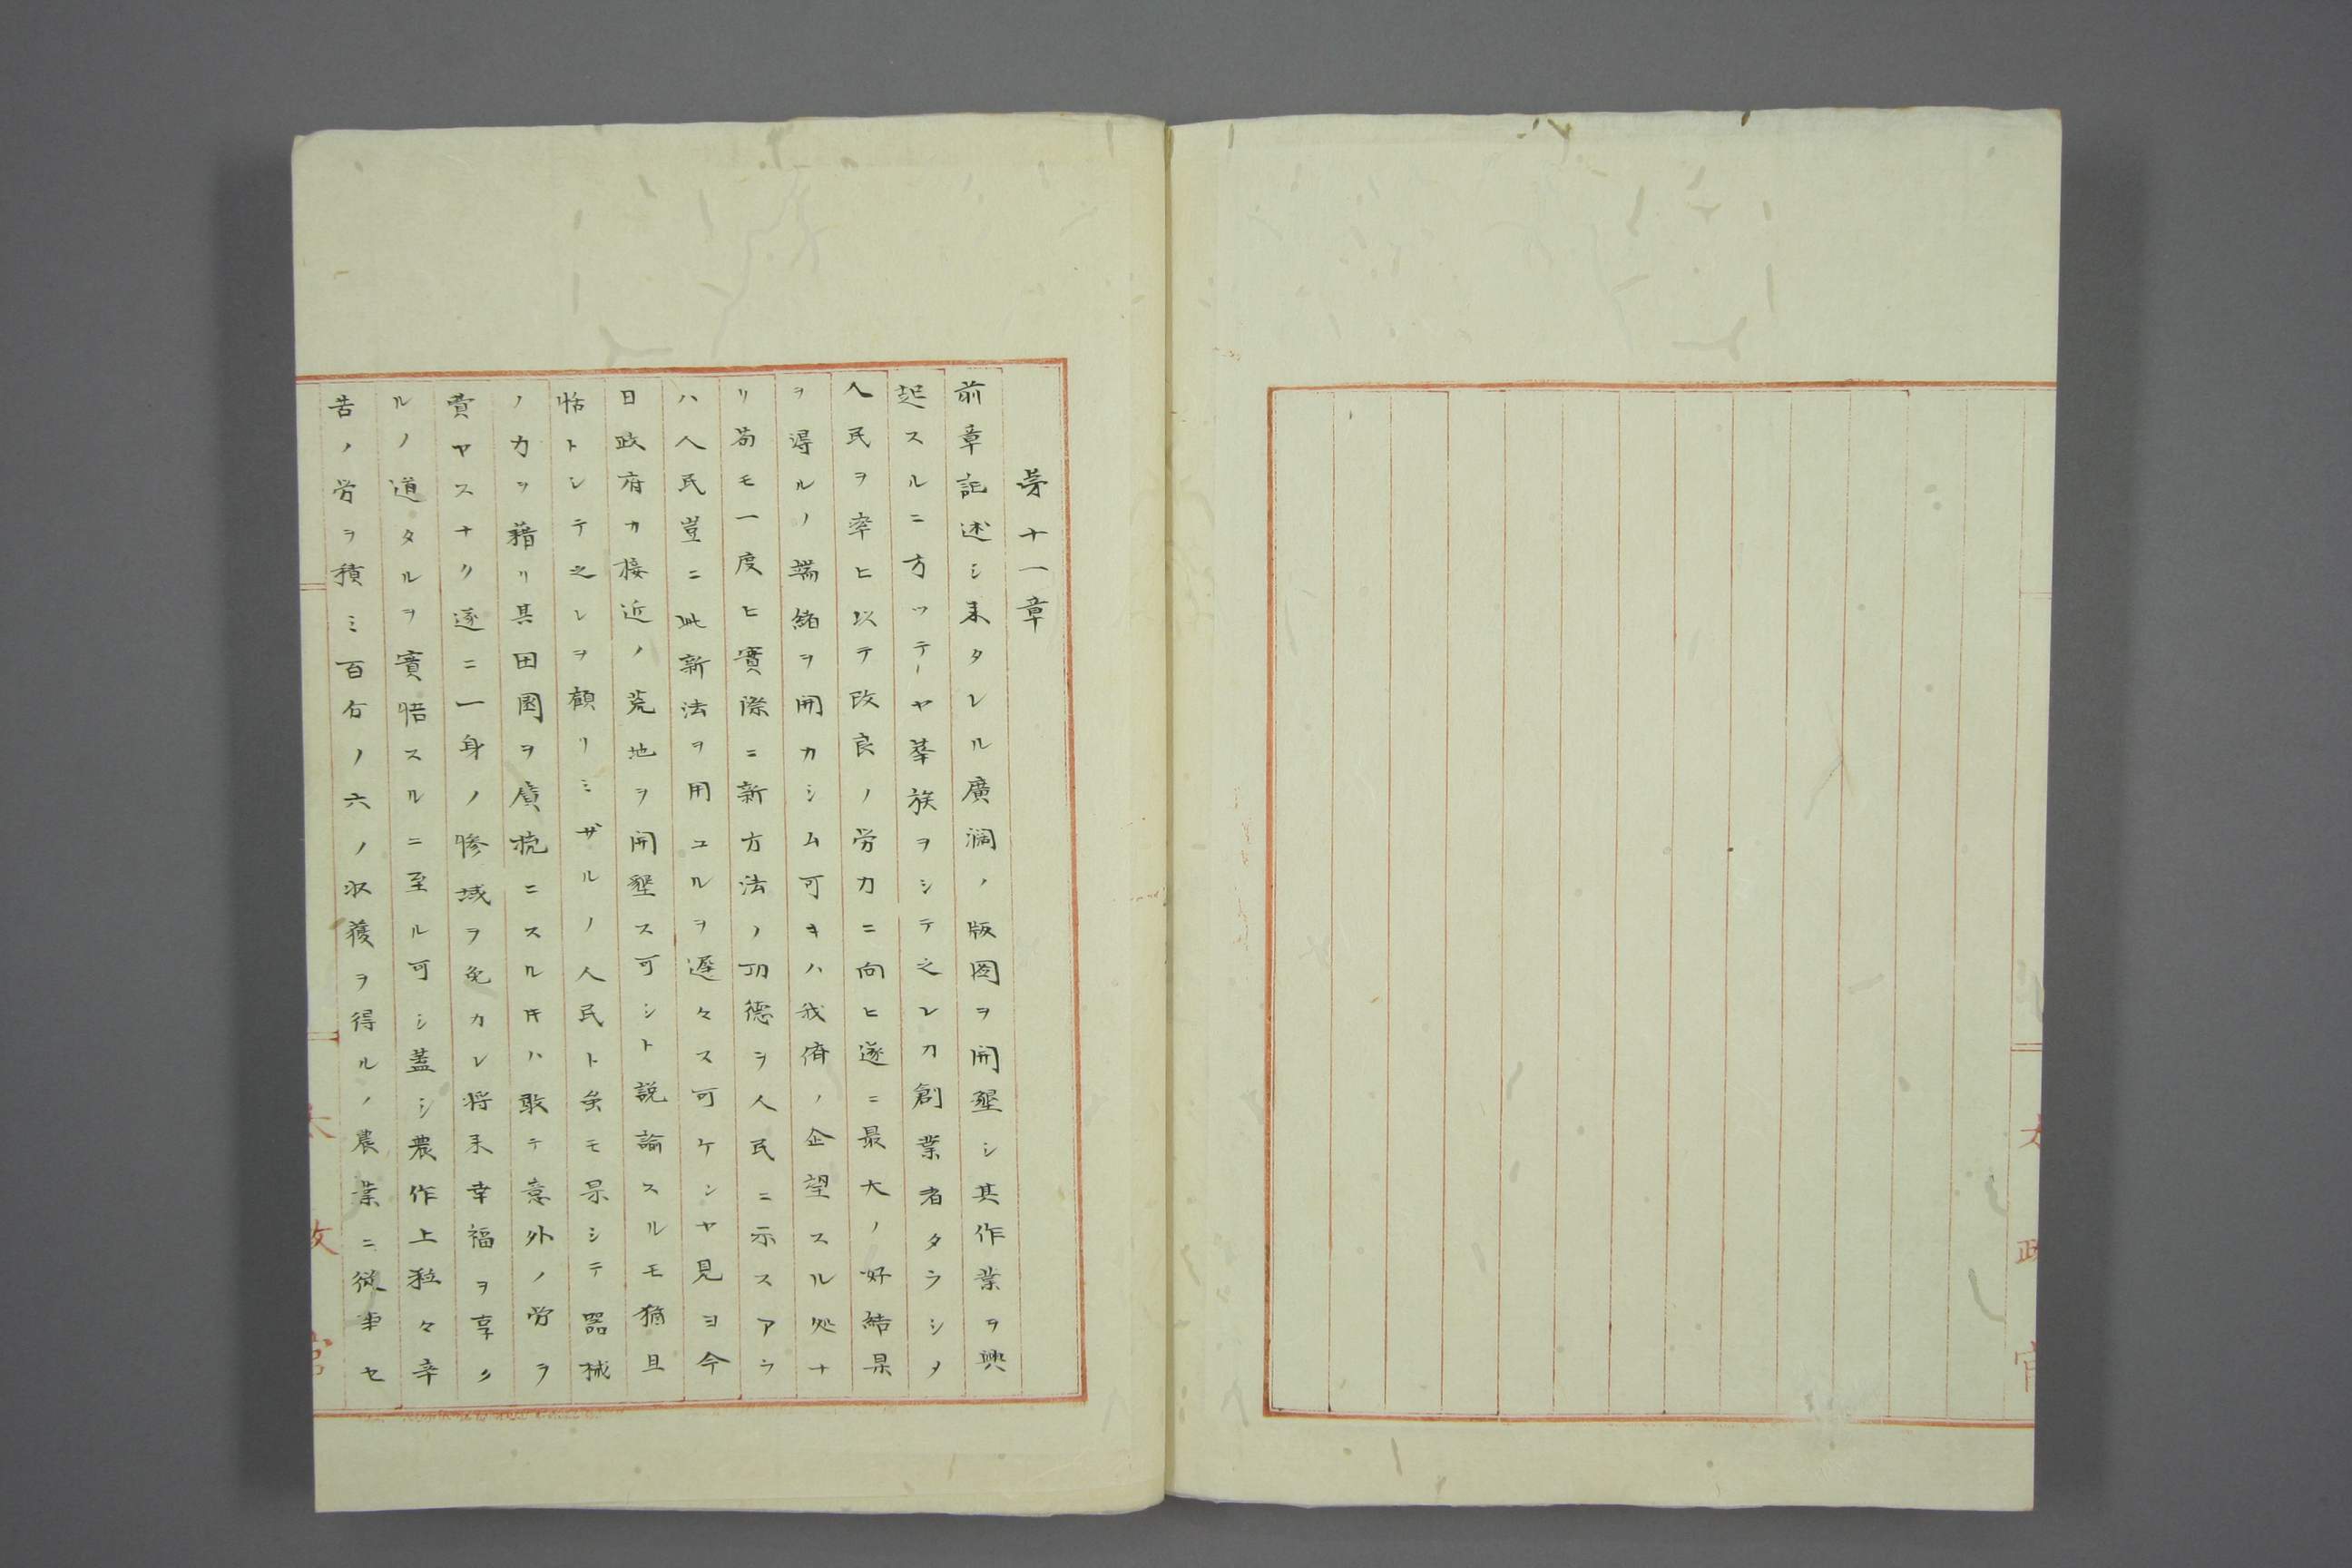 太政官
第十一章
前章記述シ来タレル廣濶ノ版図ヲ開墾シ其作業ヲ興
起スルニ方ツテヤ華族ヲシテ之レカ創業者タラシメ
人民ヲ率ヒ以テ改良ノ労力ニ向ヒ遂ニ最大ノ好結果
ヲ得ルノ端緒ヲ開カシム可キハ我儕ノ企望スル処ナ
リ苟モ一度ヒ實際ニ新方法ノ功徳ヲ人民ニ示スアラ
ハ人民豈ニ此新法ヲ用ユルヲ遅々ス可ケンヤ見ヨ今
日政府カ接近ノ荒地ヲ開墾ス可シト説諭スルモ猶且
恬トシテ之レヲ顧リミザルノ人民ト雖モ果シテ器械
ノ力ヲ藉リ其田園ヲ廣拡ニスル𪜈ハ敢テ意外ノ労ヲ
費ヤスナク遂ニ一身ノ惨域ヲ免カレ将来幸福ヲ享ク
ルノ道タルヲ實悟スルニ至ル可シ蓋シ農作上粒々辛
苦ノ労ヲ積ミ百分ノ六ノ収獲ヲ得ルノ農業ニ従事セ
太政官